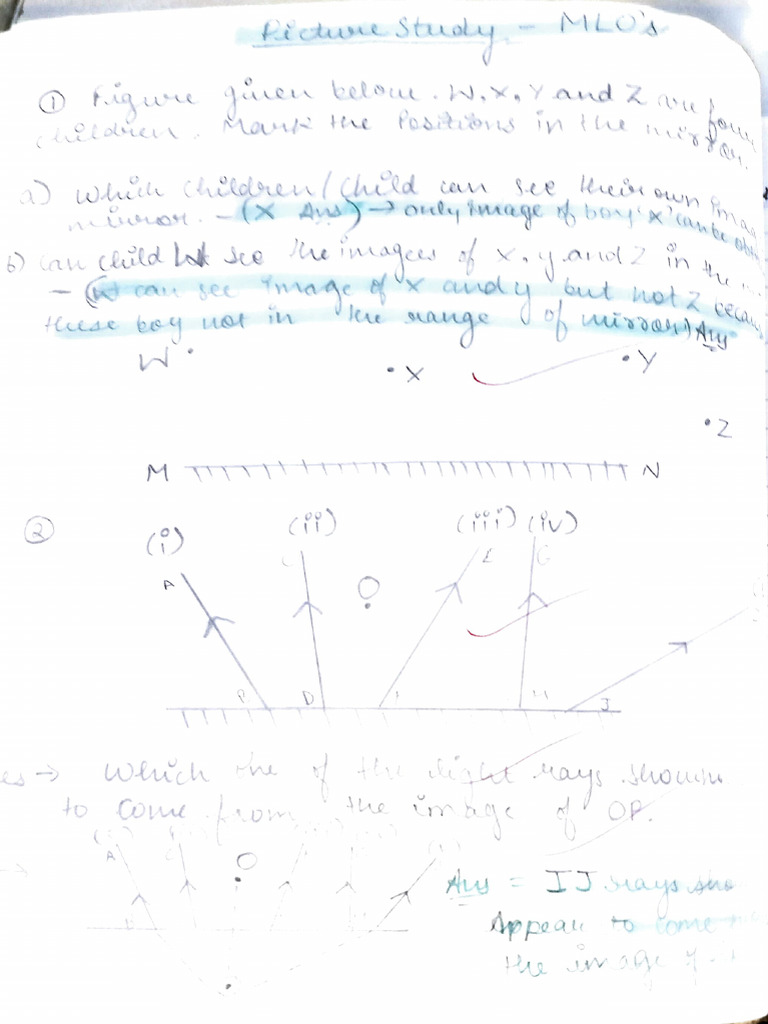 Picture Study - MLO's
① Figure given below. W, X, Y and Z are four
children. Mark the Positions in the mirror.
a) which children/child can see their own imag
mirror. - (X Ans) → only image of boy 'X' can be obt
b) Can child W see the images of X, y and Z in the
- (W can see image of X and y but not Z becau
these boy not in the range of mirror) Ans
W
X
Y
Z
M N
②
(i) (ii) (iii) (iv)
A C O E G
B D F H J
es → Which one of the light rays shown
to come from the image of OP.
A C O
Ans = IJ rays sho
Appear to come
the image of